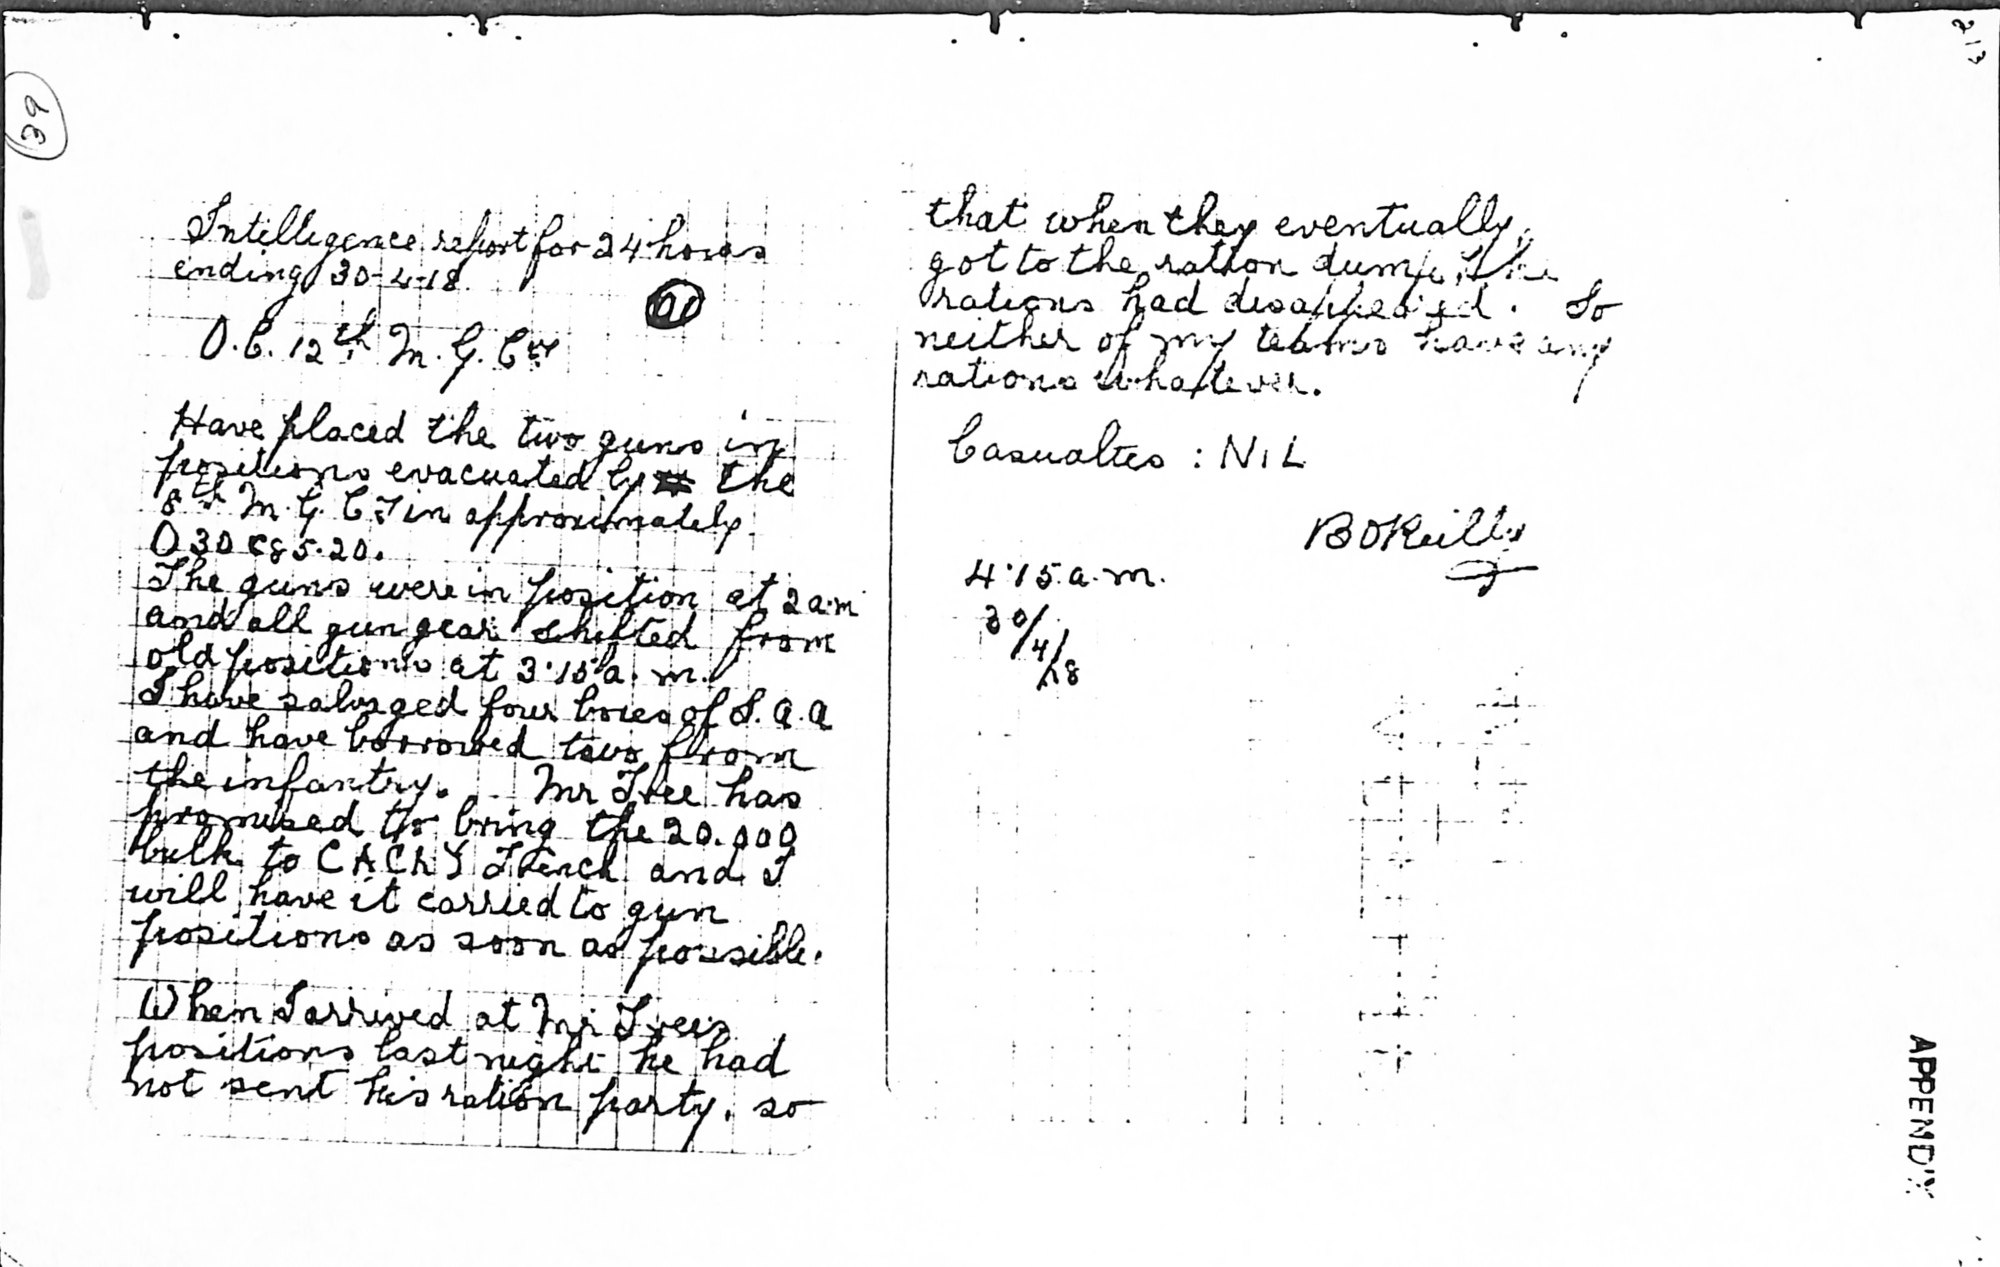 39
213
Intelligence report for 24 hours
ending 30-4-18.
O.C. 12th M.G. Coy
Have placed the two guns in
positions evacuated by the
8th M.G. C in approximately
O 30 c 85.20.
The guns were in position at 2 a.m
and all gun gear shifted from
old positions at 3.15 a.m.
I have salvaged four boxes of S.A.A
and have borrowed two from
the infantry. Mr Tree has
promised to bring the 20.000
bulk to CACHY Trench and I
will have it carried to gun
positions as soon as possible.
When I arrived at Mr Trees
positions last night he had
not sent his ration party, so
that when they eventually
got to the ration dump, the
rations had disappeared. So
neither of my teams have any
rations whatever.
Casualties : NIL
B O'Reilly
4.15 a.m.
30/4/18
APPENDIX